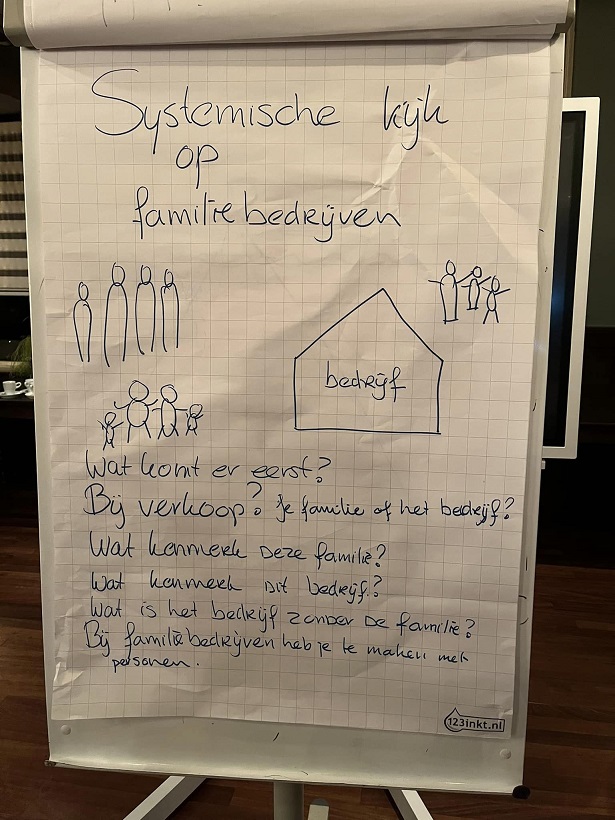 Systemische kijk
op
familiebedrijven
bedrijf
Wat komt er eerst?
Bij verkoop? Je familie of het bedrijf?
Wat kenmerk deze familie?
Wat kenmerk dit bedrijf?
Wat is het bedrijf zonder de familie?
Bij familiebedrijven heb je te maken met
personen.
123inkt.nl